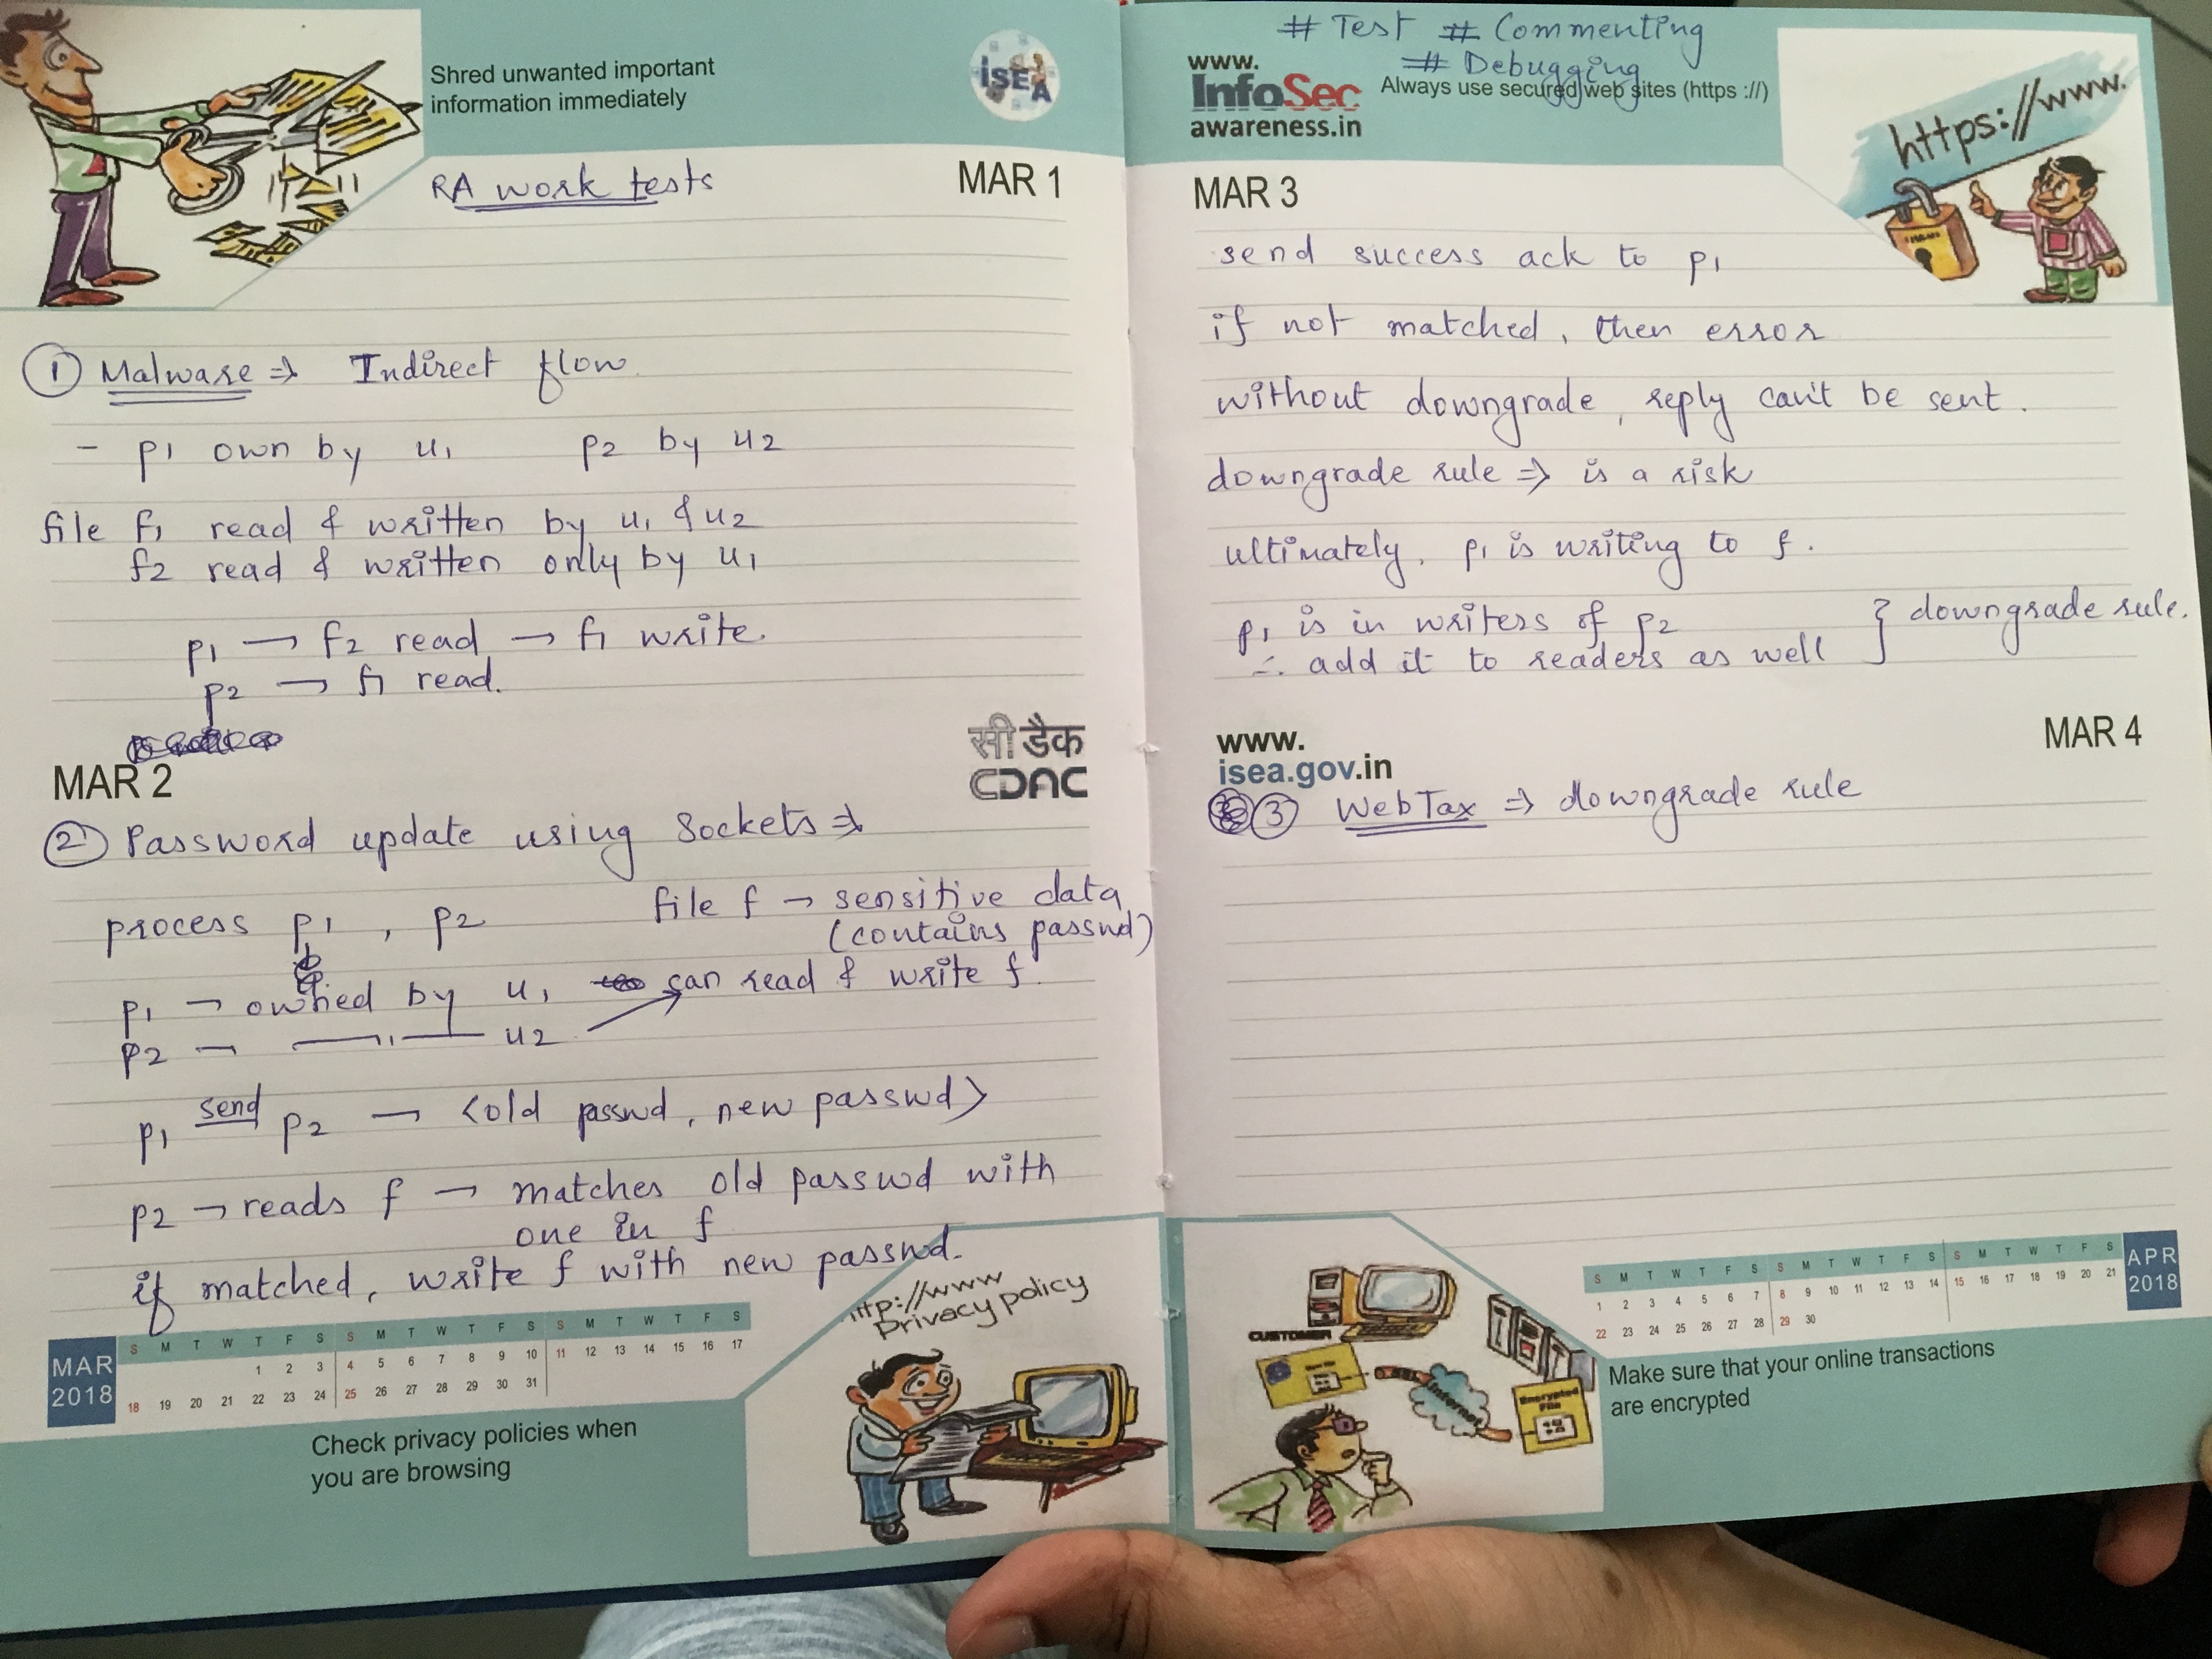 Shred unwanted important
information immediately
ISEA
RA work tests
MAR 1
① Malware ⇒ Indirect flow.
- p1 own by u1 p2 by u2
file f1 read & written by u1 & u2
f2 read & written only by u1
p1 → f2 read → f1 write.
p2 → f1 read.
सी डैक
CDAC
MAR 2
② Password update using sockets ⇒
process p1 , p2 file f → sensitive data
(contains passwd)
p1 → owned by u1 can read & write f.
p2 → —"— u2
p1 send p2 → <old passwd, new passwd>
p2 → reads f → matches old passwd with
one in f
if matched, write f with new passwd.
MAR
2018
S M T W T F S S M T W T F S S M T W T F S
1 2 3 4 5 6 7 8 9 10 11 12 13 14 15 16 17
18 19 20 21 22 23 24 25 26 27 28 29 30 31
Check privacy policies when
you are browsing
ttp://www
Privacy policy
# Test # Commenting
# Debugging
www.
InfoSec
awareness.in
Always use secured web sites (https ://)
https://www.
MAR 3
send success ack to p1
if not matched, then error
without downgrade, reply can't be sent.
downgrade rule ⇒ is a risk
ultimately, p1 is writing to f.
p1 is in writers of p2
∴ add it to readers as well } downgrade rule.
www.
isea.gov.in
MAR 4
③ WebTax ⇒ downgrade rule
CUSTOMER
Internet
Encrypted
File
S M T W T F S S M T W T F S S M T W T F S
1 2 3 4 5 6 7 8 9 10 11 12 13 14 15 16 17 18 19 20 21
22 23 24 25 26 27 28 29 30
APR
2018
Make sure that your online transactions
are encrypted